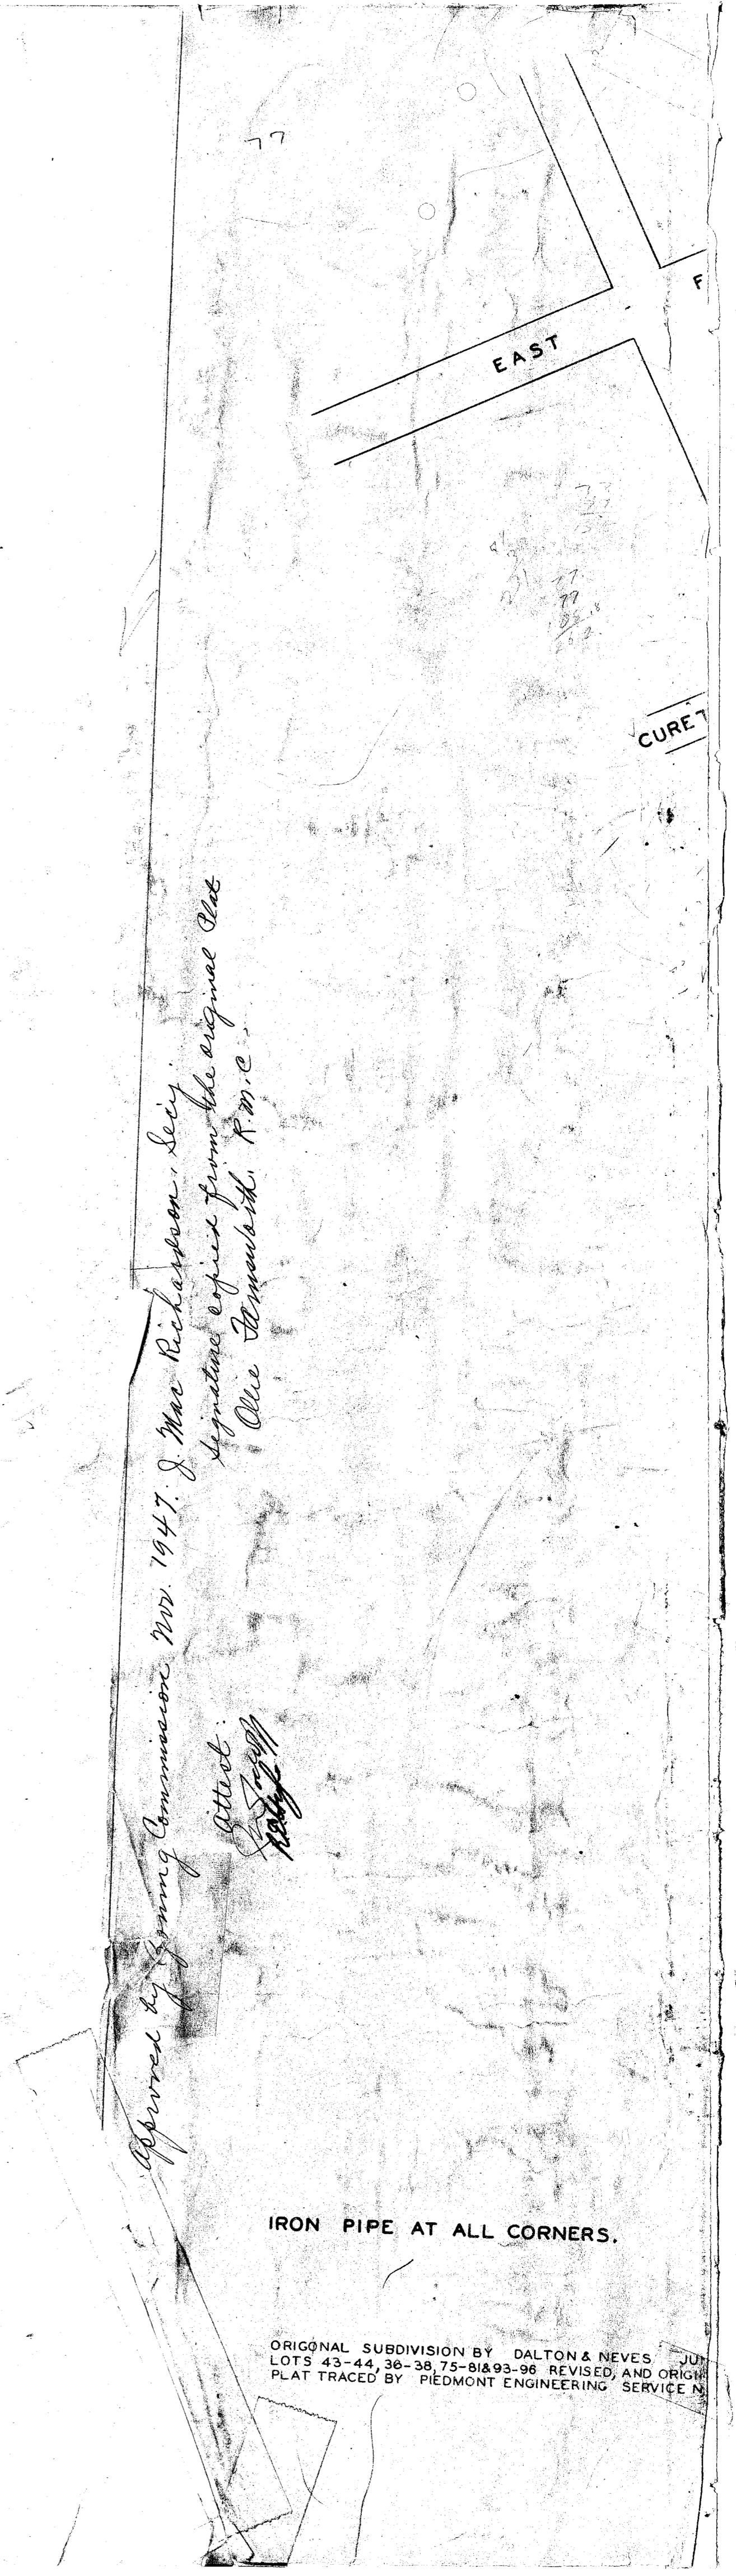 77
F
EAST
77
77
CURET
Approved by Zoning Commission Nov. 1947. J. Mac Richardson, Secy.
Signature copied from the original Plat
Ollie Farnsworth. R.M.C.
Attest:
IRON PIPE AT ALL CORNERS.
ORIGONAL SUBDIVISION BY DALTON & NEVES JU
LOTS 43-44, 36-38, 75-81&93-96 REVISED, AND ORIGI
PLAT TRACED BY PIEDMONT ENGINEERING SERVICE N